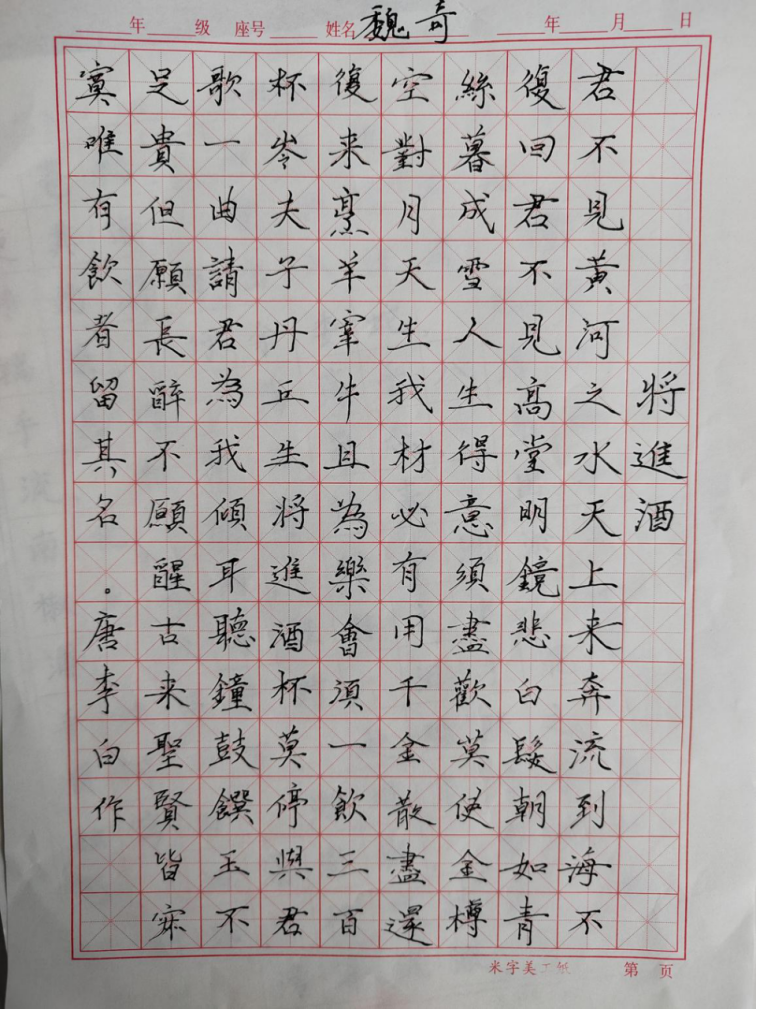 年 级 座号 姓名 魏奇 年 月 日
將進酒
君不見黃河之水天上来奔流到海不
復回君不見高堂明鏡悲白髮朝如青
絲暮成雪人生得意須盡歡莫使金樽
空對月天生我材必有用千金散盡還
復来烹羊宰牛且為樂會須一飲三百
杯岑夫子丹丘生將進酒杯莫停與君
歌一曲請君為我傾耳聽鐘鼓饌玉不
足貴但願長醉不願醒古来聖賢皆寂
寞唯有飲者留其名。唐李白作
米字美工纸 第 页